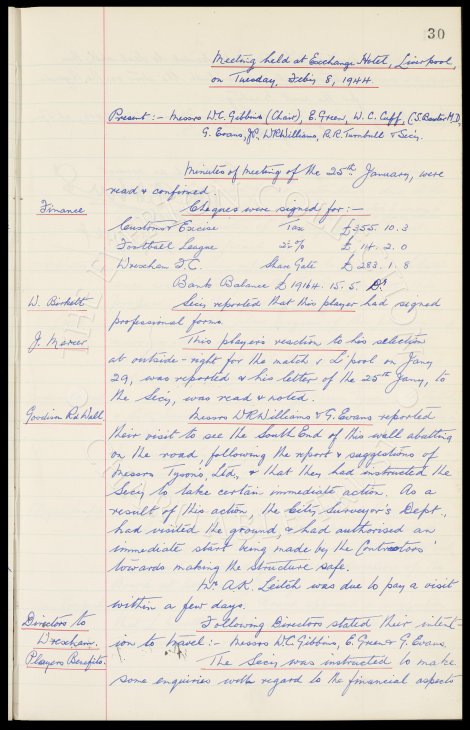 30
Meeting held at Exchange Hotel, Liverpool,
on Tuesday, Feby 8, 1944.
Present :- Messrs W.C. Gibbins (Chair), E. Green, W. C. Cuff, C.S. Baxter M.D,
G. Evans, J.P, W.R. Williams, R.R. Turnbull & Secy.
Minutes of Meeting of the 25th January, were
read & confirmed.
Finance Cheques were signed for :-
Customs & Excise Tax £355. 10. 3
Football League 2½% £ 14. 2. 0
Wrexham F.C. Share Gate £ 283. 1. 8
Bank Balance £19164. 15. 5. Dr
W. Birkett Secy reported that this player had signed
professional forms.
J. Mercer This player's reaction to his selection
at outside-right for the match v L'pool on Jany
29, was reported & his letter of the 25th Jany, to
the Secy, was read & noted.
Goodison Rd Wall Messrs W.R. Williams & G. Evans reported
their visit to see the South End of this wall abutting
on the road, following the report & suggestions of
Messrs Tysons, Ltd, & that they had instructed the
Secy to take certain immediate action. As a
result of this action, the City Surveyor's Dept.,
had visited the ground, & had authorised an
immediate start being made by the Contractors
towards making the structure safe.
Mr A.K. Leitch was due to pay a visit
within a few days.
Directors to Following Directors stated their intent-
Wrexham. ion to travel :- Messrs W.C. Gibbins, E. Green & G. Evans
Players Benefits. The Secy was instructed to make
some enquiries with regard to the financial aspects